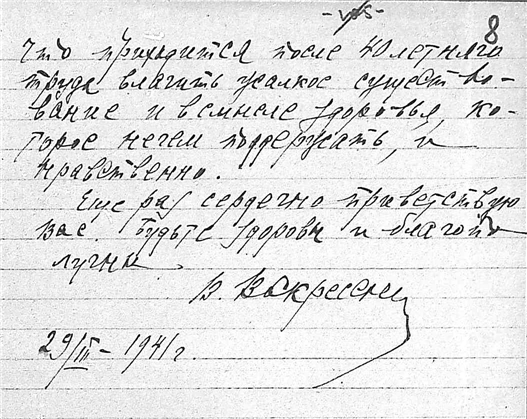 8
что приходится после 40 летняго
труда влачить жалкое существо-
вание и в смысле здоровья, ко-
торое нечем поддержать, и
нравственно.
Еще раз сердечно приветствую
вас. Будьте здоровы и благопо
лучны.
В. Воскресенс
29/III - 1941 г.